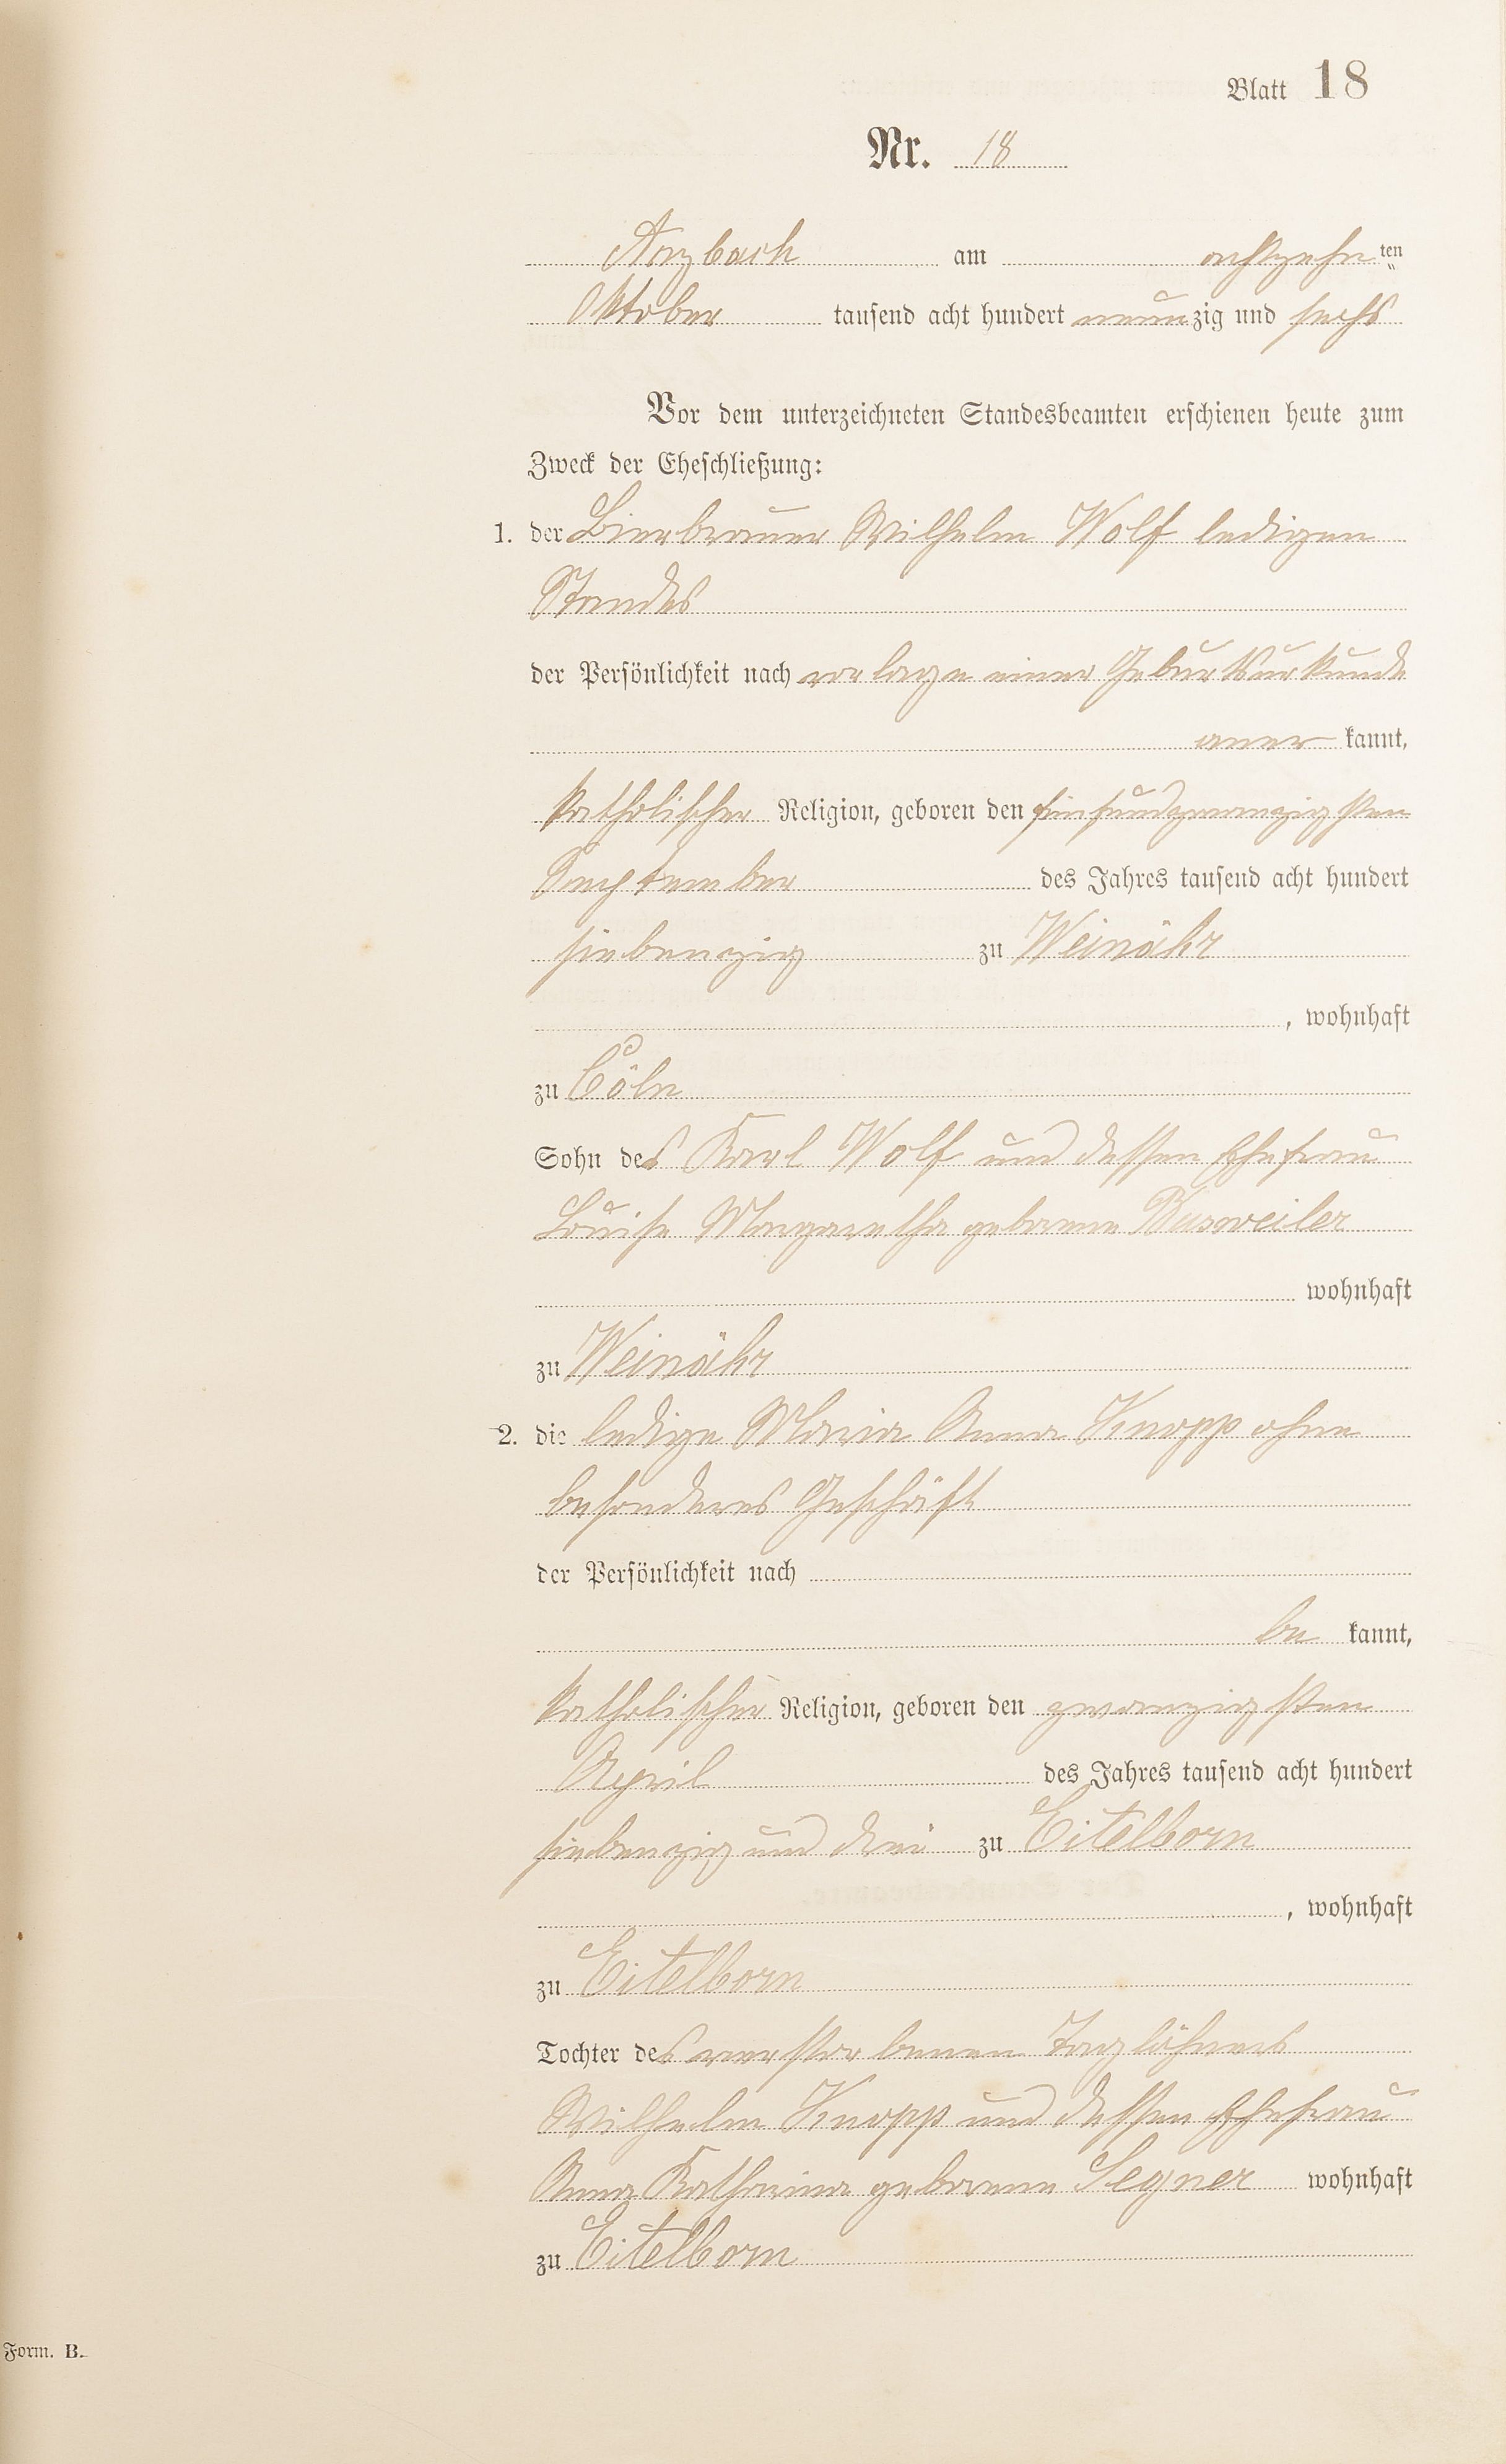 Blatt 18
Nr. 18
Arzbach am achtzehnten
Oktober tausend acht hundert neunzig und sechs
Vor dem unterzeichneten Standesbeamten erschienen heute zum
Zweck der Eheschließung:
1. der Bierbrauer Wilhelm Wolf ledigen
Standes
der Persönlichkeit nach vorlage einer Geburtsurkunde
aner kannt,
katholischer Religion, geboren den fünfundzwanzigsten
September des Jahres tausend acht hundert
siebenzig zu Weinähr
, wohnhaft
zu Cöln
Sohn des Karl Wolf und dessen Ehefrau
Louise Margaretha geborene Busweiler
wohnhaft
zu Weinähr
2. die ledige Maria Anna Knopp ohne
besonderes Geschäft
der Persönlichkeit nach
be kannt,
katholischer Religion, geboren den zwanzigsten
April des Jahres tausend acht hundert
siebenzig und drei zu Eitelborn
, wohnhaft
zu Eitelborn
Tochter des verstorbenen Taglöhners
Wilhelm Knopp und dessen Ehefrau
Anna Katharina geborene Segner wohnhaft
zu Eitelborn
Form. B.